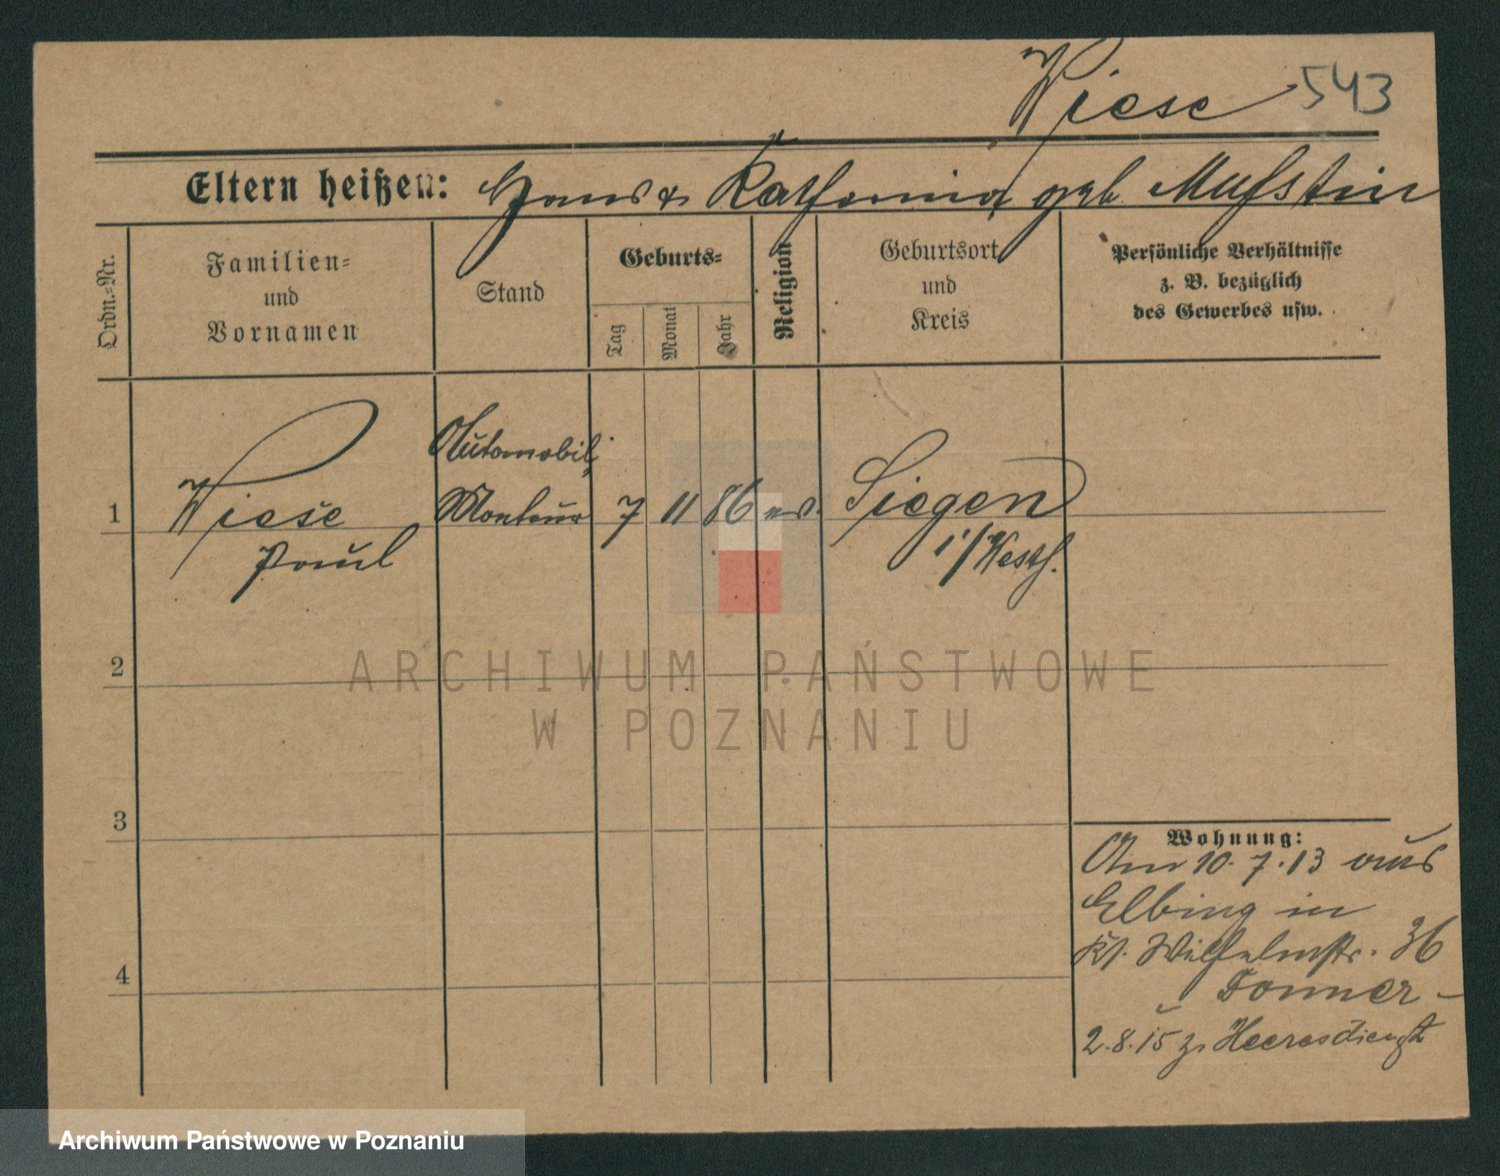 Wiese 543
Eltern heißen: Hans & Katharina geb.
Ordn.-Nr.
Familien-
und
Vornamen
Stand
Geburts-
Tag
Monat
Jahr
Religion
Geburtsort
und
Kreis
Persönliche Verhältnisse
z. B. bezüglich
des Gewerbes usw.
Automobil-
1 Wiese Monteur 7 11 86 ev. Siegen
Paul i/Westf.
2
ARCHIWUM PAŃSTWOWE
W POZNANIU
3
Wohnung:
Am 10.7.13 aus
Elbing in
Kl. Wilhelmstr. 36
4
2.8.15 z. Heeresdienst
Archiwum Państwowe w Poznaniu